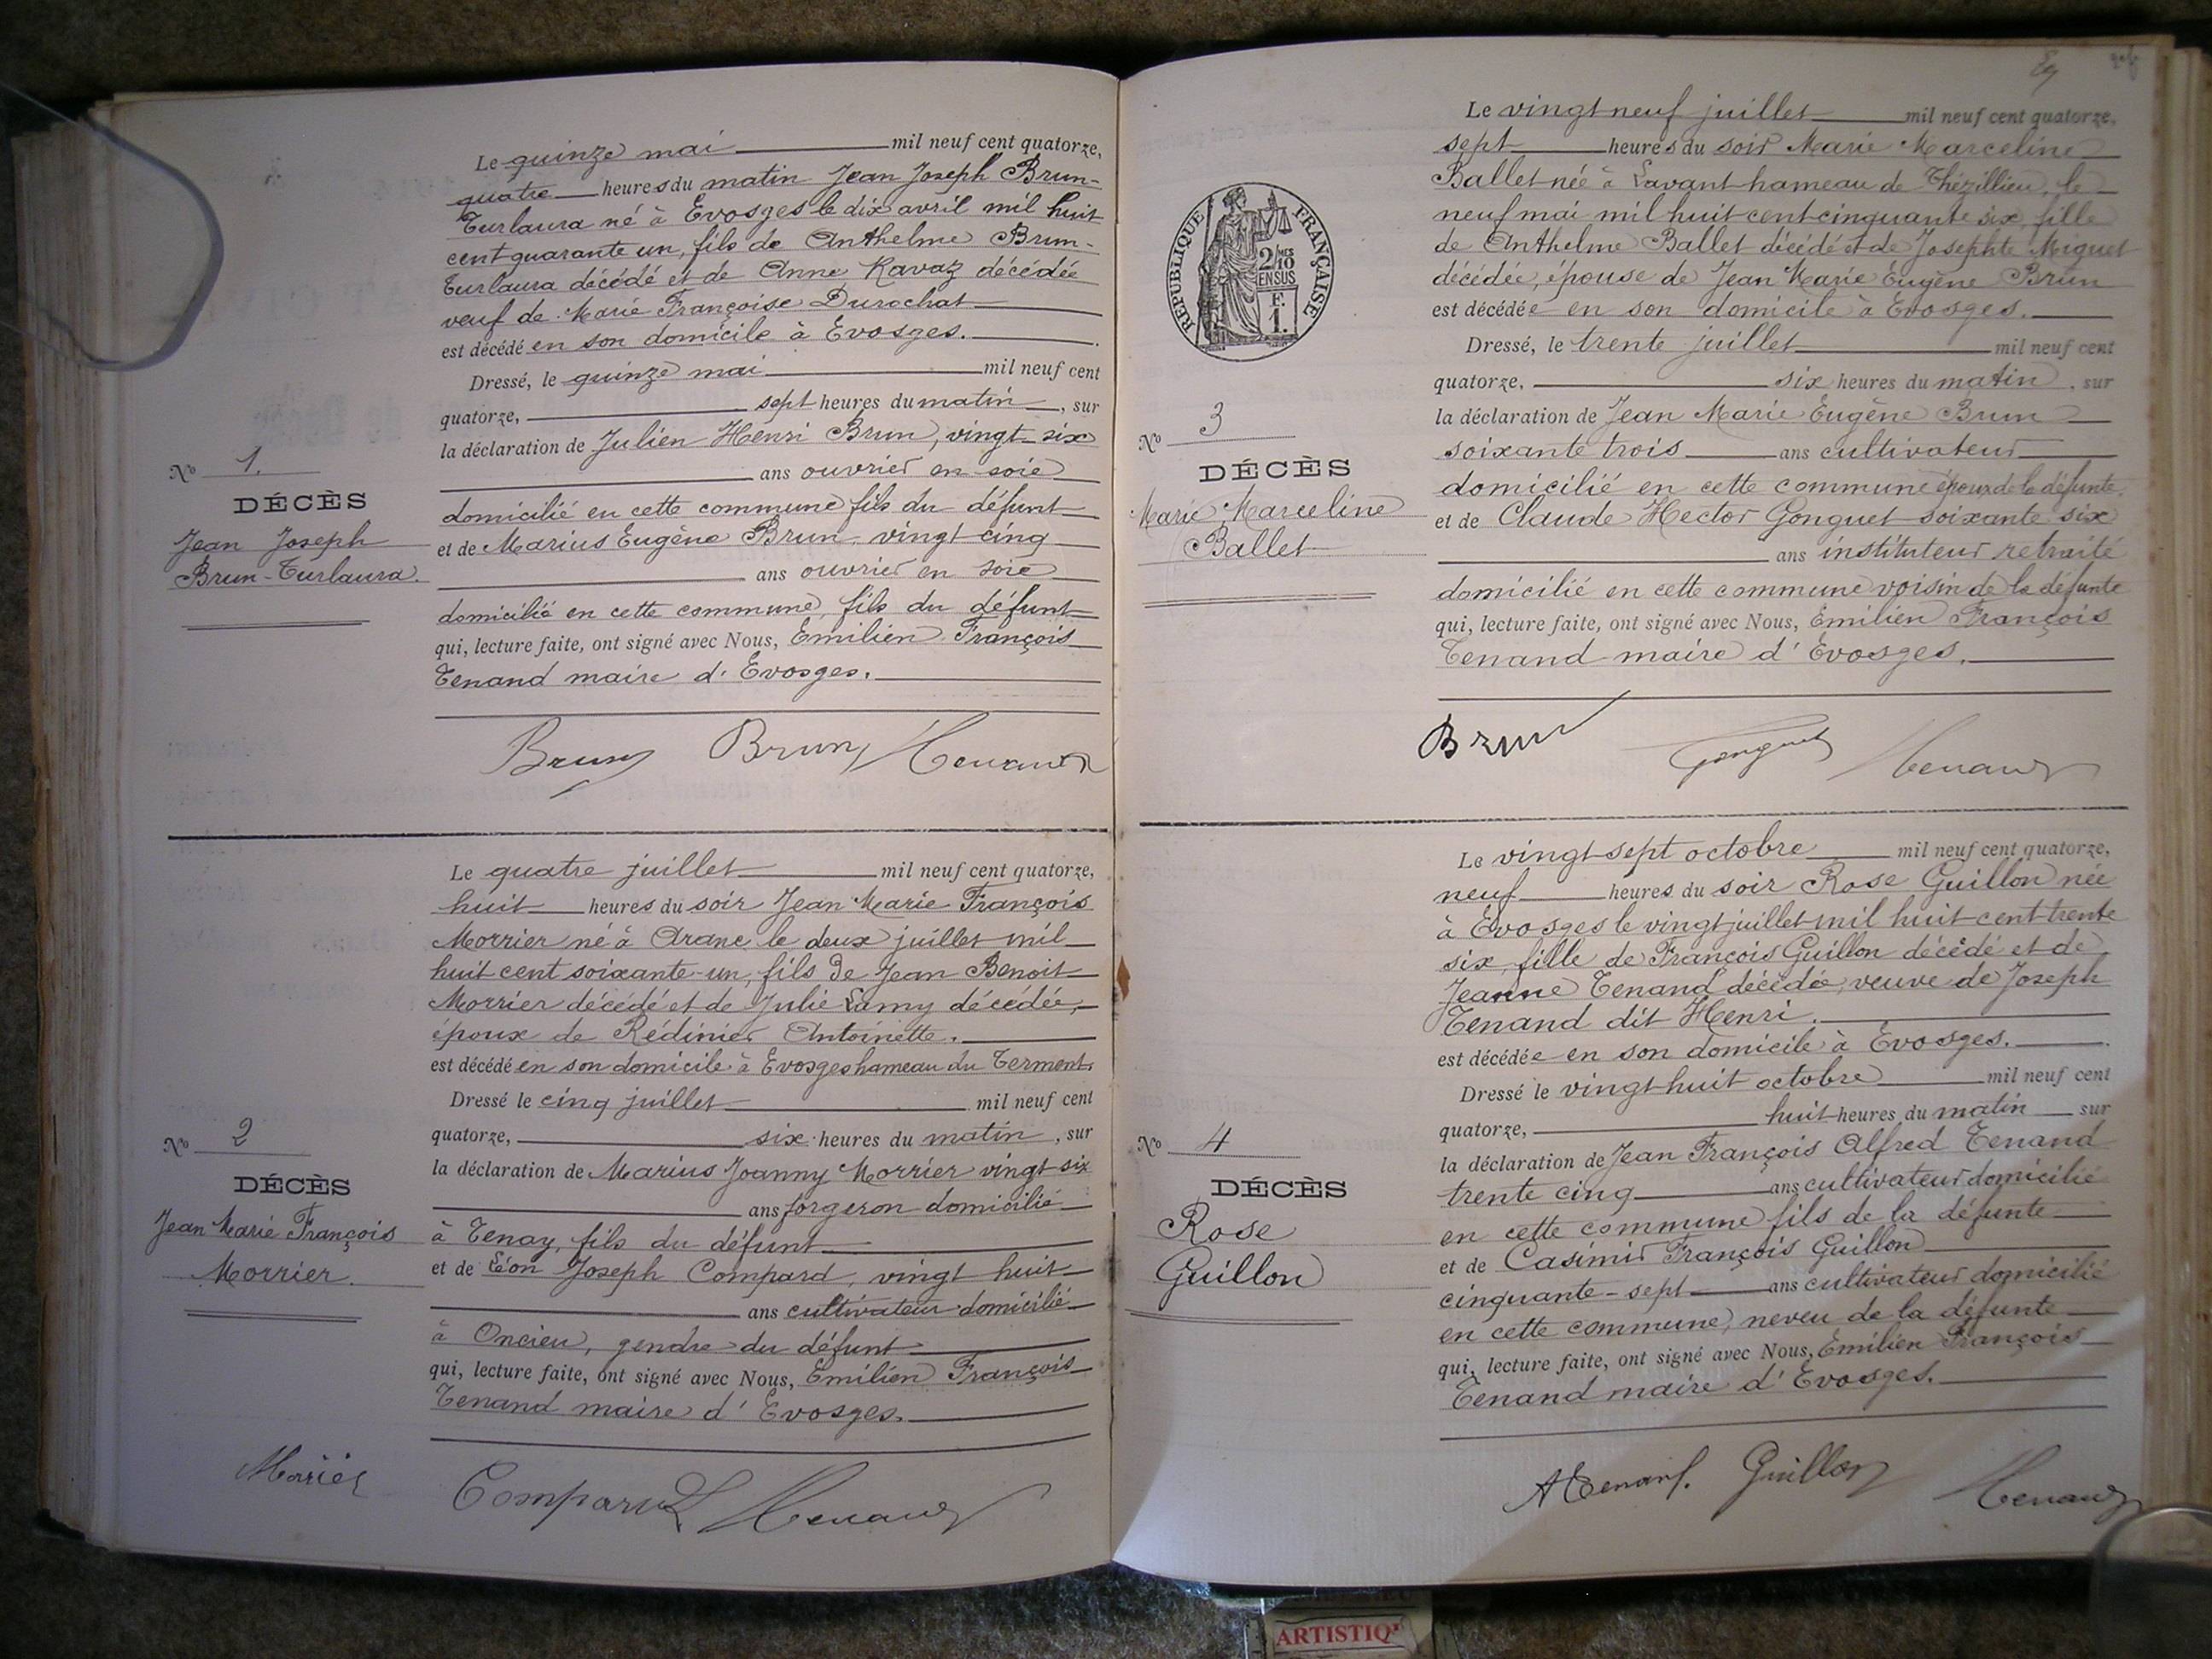 Le quinze mai mil neuf cent quatorze,
quatre heures du matin Jean Joseph Brun-
Turlaura né à Evosges le dix avril mil huit
cent quarante un, fils de Anthelme Brun-
Turlaura décédé et de Anne Ravaz décédée
veuf de Marie Françoise Durochat
est décédé en son domicile à Evosges.
Dressé, le quinze mai mil neuf cent
quatorze, sept heures du matin, sur
la déclaration de Julien Henri Brun, vingt six
ans ouvrier en soie
domicilié en cette commune fils du défunt
et de Marius Eugène Brun, vingt cinq
ans ouvrier en soie
domicilié en cette commune, fils du défunt
qui, lecture faite, ont signé avec Nous, Emilien François
Tenand maire d'Evosges.
No 1.
DÉCÈS
Jean Joseph
Brun-Turlaura.
Brun Brun Tenand
Le quatre juillet mil neuf cent quatorze,
huit heures du soir Jean Marie François
Morrier né à Aranc le deux juillet mil
huit cent soixante-un, fils de Jean Benoit
Morrier décédé et de Julie Lamy décédée,
époux de Rédinier Antoinette.
est décédé en son domicile à Evosges hameau du Terment.
Dressé le cinq juillet mil neuf cent
quatorze, six heures du matin, sur
la déclaration de Marius Joanny Morrier vingt six
ans forgeron domicilié
à Tenay, fils du défunt
et de Léon Joseph Compard, vingt huit
ans cultivateur domicilié
à Oncieu, gendre du défunt
qui, lecture faite, ont signé avec Nous, Emilien François
Tenand maire d'Evosges.
No 2
DÉCÈS
Jean Marie François
Morrier.
Morrier Compard Tenand
Le vingt neuf juillet mil neuf cent quatorze,
sept heures du soir Marie Marceline
Ballet née à Lavant hameau de Thézillieu, le
neuf mai mil huit cent cinquante six, fille
de Anthelme Ballet décédé et de Josephte Miguet
décédée, épouse de Jean Marie Eugène Brun
est décédée en son domicile à Evosges.
Dressé, le trente juillet mil neuf cent
quatorze, six heures du matin, sur
la déclaration de Jean Marie Eugène Brun
soixante trois ans cultivateur
domicilié en cette commune époux de la défunte.
et de Claude Hector Gonguet soixante six
ans instituteur retraité
domicilié en cette commune voisin de la défunte
qui, lecture faite, ont signé avec Nous, Emilien François
Tenand maire d'Evosges.
RÉPUBLIQUE FRANÇAISE
2/10 EN SUS
F.
1.
No 3
DÉCÈS
Marie Marceline
Ballet
Brun Gonguet Tenand
Le vingt-sept octobre mil neuf cent quatorze,
neuf heures du soir Rose Guillon née
à Evosges le vingt juillet mil huit cent trente
six, fille de François Guillon décédé et de
Jeanne Tenand décédée, veuve de Joseph
Tenand dit Henri.
est décédée en son domicile à Evosges.
Dressé le vingt-huit octobre mil neuf cent
quatorze, huit heures du matin sur
la déclaration de Jean François Alfred Tenand
trente cinq ans cultivateur domicilié
en cette commune fils de la défunte
et de Casimir François Guillon
cinquante-sept ans cultivateur domicilié
en cette commune, neveu de la défunte
qui, lecture faite, ont signé avec Nous, Emilien François
Tenand maire d'Evosges.
No 4
DÉCÈS
Rose
Guillon
A Tenand. Guillon Tenand
ARTISTIQ